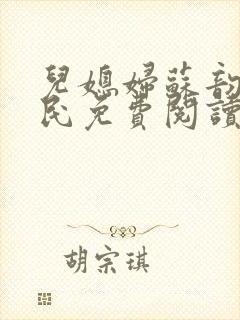 兒媳婦蘇韵
民免費閱讀
胡宗琪